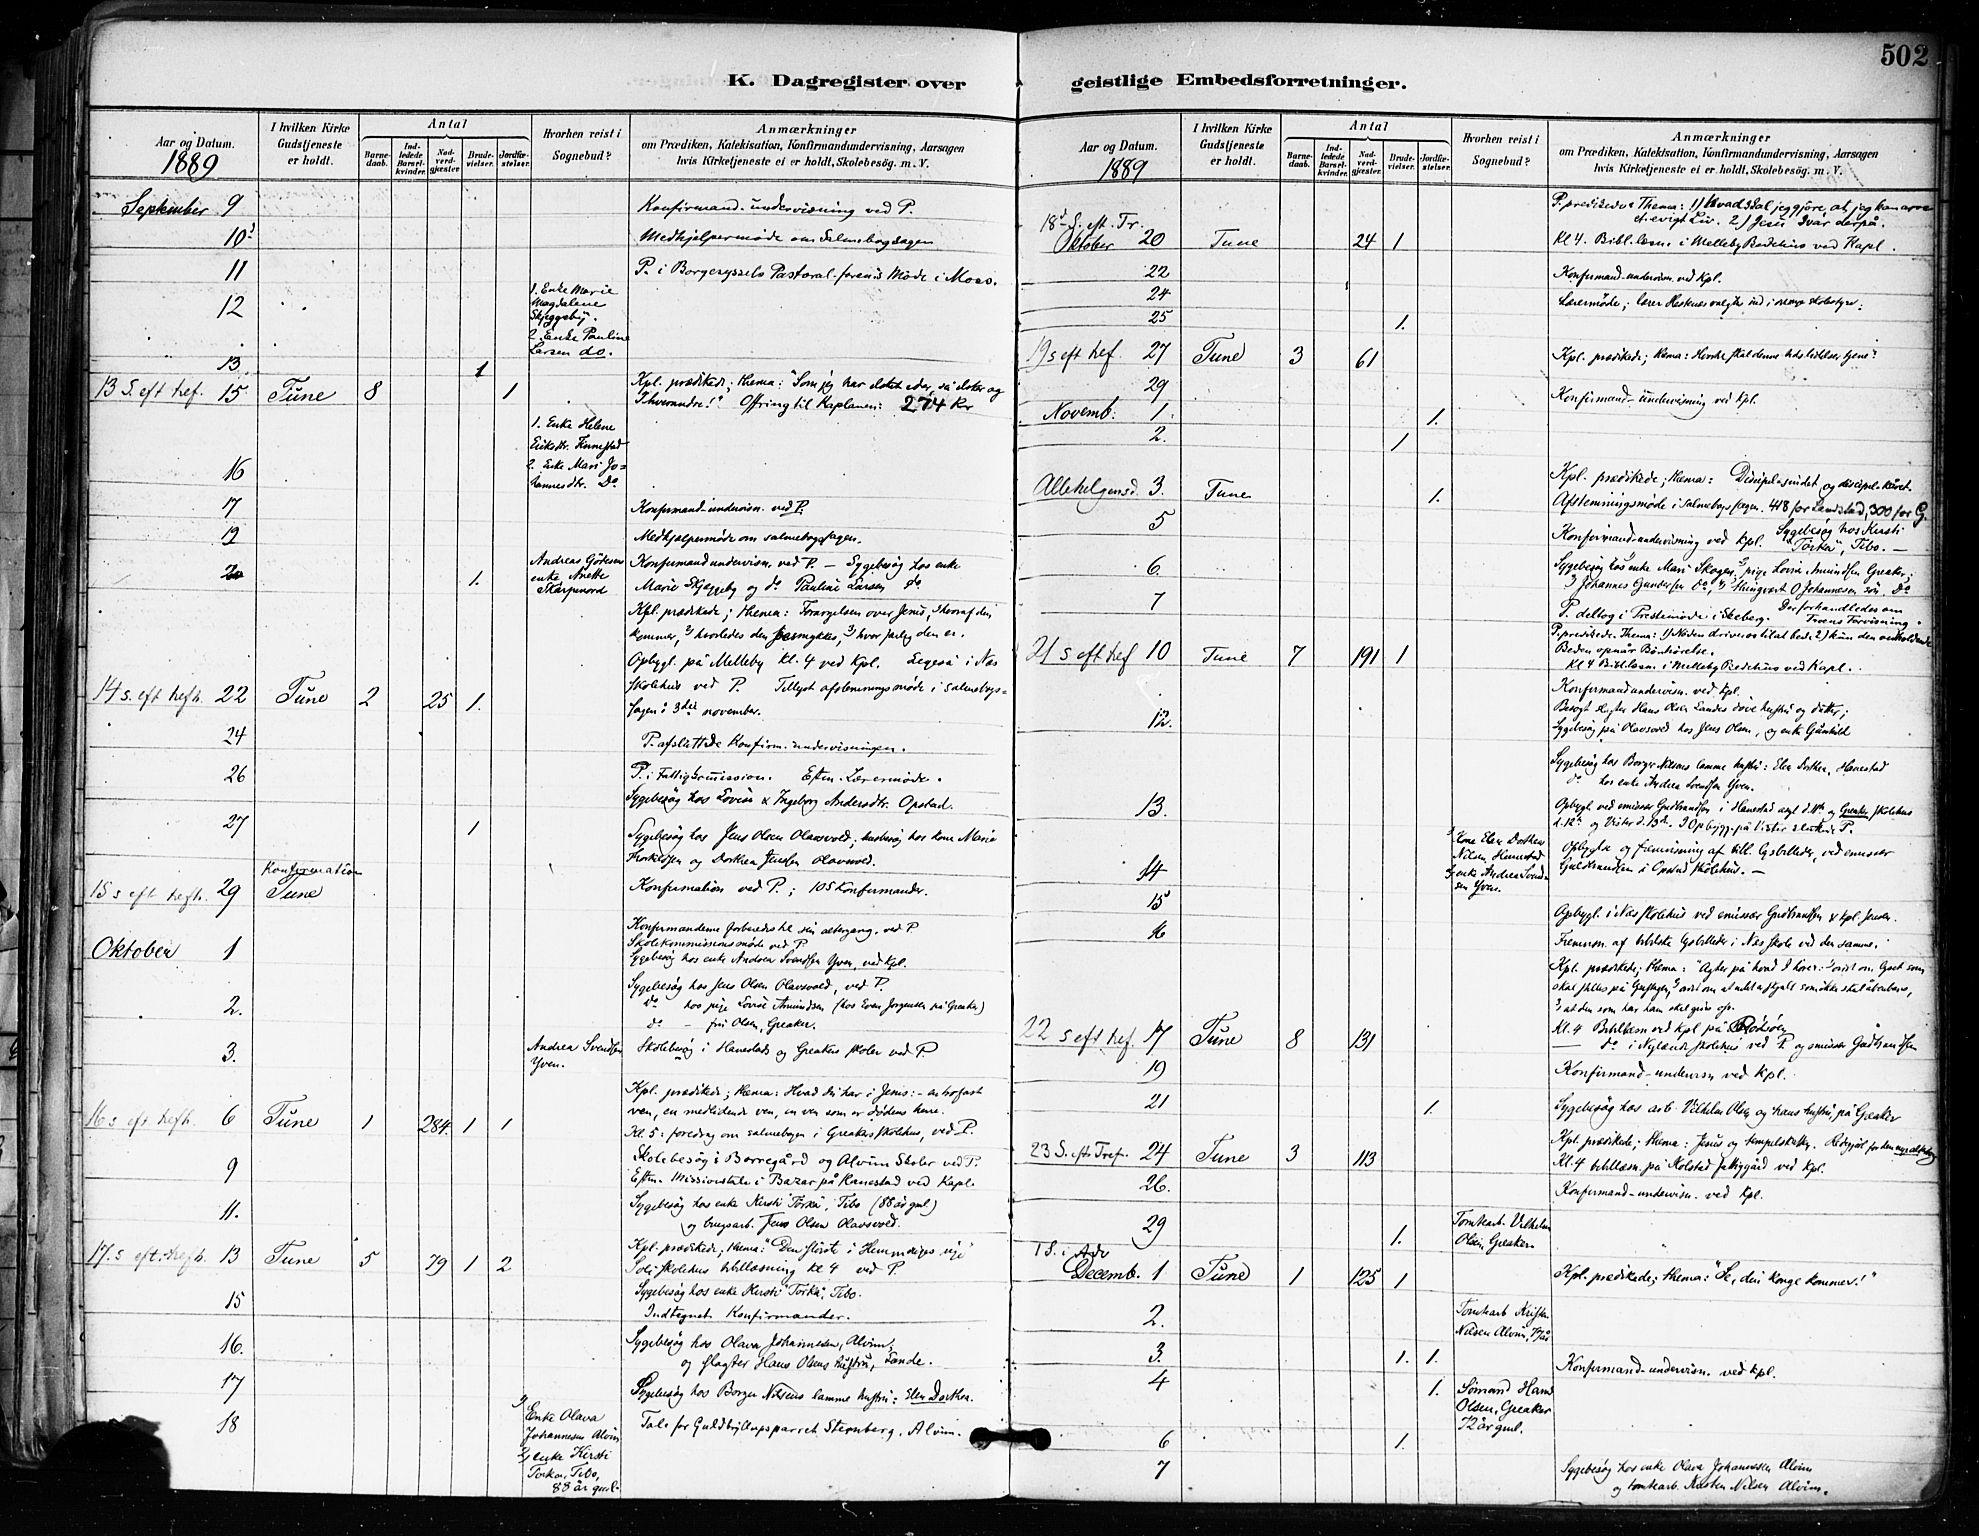 502
K. Dagregister over geistlige Embedsforretninger.
Aar og Datum.
1889
I hvilken Kirke
Gudstjeneste
er holdt.
Antal
Barne-
daab.
Ind-
ledede
Barsel-
kvinder.
Nad-
verd-
gjæster.
Brude-
vielser.
Jordfæ-
stelser.
Hvorhen reist i
Sognebud?
Anmærkninger
om Prædiken, Katekisation, Konfirmandundervisning, Aarsagen
hvis Kirketjeneste ei er holdt, Skolebesøg. m. V.
September 9 Konfirmand-undervisning ved P.
10 Medhjelpermøde om Salmebogsagen
11 P. i Borgesyssels Pastoral-forenis Møde i Moss.
12 1. Enke Marie
Magdalene
Skjeggeby.
2. Enke Pauline
Larsen do.
13 1
13 S. eft hef. 15 Tune 8 1 Kpl. prædikede; thema: "Som jeg har elsket eder, så elsker og
I hverandre!" Offring til Kaplanen: 274 kr
1. Enke Helene
16 2. Enke Mari Jo-
hannesdtr. Do
17 Konfirmand-undervisn. ved P.
19 Medhjelpermøde om salmebogsagen.
20 1. Andreas
enke Anette
Konfirmandundervisn. ved P. – Sygebesøg hos enke
Marie Skjeggeby og do Pauline Larsen do
Kpl. prædikede; thema: Forargelsen over Jesus, 1) hvoraf den
kommer, 2) hvorledes den 3) hvor farlig den er.
Opbygl. på Melleby kl. 4 ved Kpl. i Næs
Skolehus ved P. Tillyst afstemningsmøde i salmebogs-
sagen i 3die november.
14 s. eft hefh. 22 Tune 2 25 1.
24 P. afsluttede Konfirm.-undervisningen.
26 P. i Fattigkommission. Eftm. Lærermøde.
Sygebesøg hos Lovise & Ingeborg Andersdtr. Opstad.
27 1 Sygebesøg hos Jens Olsen Olavsvold, husbesøg hos kone Marie
og Dorthea Jensen Olavsvold.
Konfirmation
15 s eft hefh. 29 Tune Konfirmation ved P.; 105 Konfirmander.
Oktober 1 Konfirmanderne forberedes til sin altergang, ved P.
Skolekommissionsmøde ved P.
Sygebesøg hos enke Andrea Svendsen Yven, ved Kpl.
2. Sygebesøg hos Jens Olsen Olavsvold, ved P.
do hos pige Lovise Amundsen (hos Even Jørgensen på Greaker)
do – fru Olsen, Greaker.
3. Andrea Svendsen
Yven. Skolebesøg i Hanestad og Greakers skoler ved P.
16 s eft hefh. 6 Tune 1 284. 1 1 Kpl. prædikede; thema: Hvad du har i Jesus: – en trofast
ven, en medlidende ven, en ven som er dødens herre.
Kl. 5: foredrag om salmebogen i Greaker skolehus, ved P.
9 Skolebesøg i Borregård og Alvim Skoler ved P.
Eftm. Missionstale i Bazar på Hanestad ved Kapl.
11. Sygebesøg hos enke Kersti "Torka", Tibo (88 år gml)
og brugsarb. Jens Olsen Olavsvold.
17. s eft. hefh. 13 Tune 5 79 1 2 Kpl. prædikede; thema: "Den største i Himmeriges rige"
skolehus bibellæsning kl 4 ved P.
15 Sygebesøg hos enke Kersti "Torka", Tibo.
Indtegnet Konfirmander.
16. Sygebesøg hos Olava Johannesen, Alvim,
og slagter Hans Olsens hustru, Sande.
17 Sygebesøg hos Borger Nilsens lamme hustru: Elen Dorthea.
18 1) Enke Olava
Johannesen Alvim
2) enke Kirsti
Torka, Tibo,
88 år gml.
Tale for Guldbryllupsparret Sternberg, Alvim.
Aar og Datum.
1889
I hvilken Kirke
Gudstjeneste
er holdt.
Antal
Barne-
daab.
Ind-
ledede
Barsel-
kvinder.
Nad-
verd-
gjæster.
Brude-
vielser.
Jordfæ-
stelser.
Hvorhen reist i
Sognebud?
Anmærkninger
om Prædiken, Katekisation, Konfirmandundervisning, Aarsagen
hvis Kirketjeneste ei er holdt, Skolebesøg. m. V.
P. prædikede Thema: 1) Hvad skal jeg gjøre, at jeg kan arve
et evigt Liv. 2) Jesu Svar derpå.
18 S. eft. Tr.
Oktober 20 Tune 24 1 Kl 4. Bibl.læsn. i Melleby Bedehus ved Kapl.
22 Konfirmand-undervisn ved Kpl.
24 Lærermøde; lærer valgte ind i skolestyre.
25 1.
19 s eft hef. 27 Tune 3 61 Kpl. prædikede; thema: Hvortil skal denne tids lidelser tjene?
29 Konfirmand-undervisning ved Kpl.
Novemb. 1. 1.
2. 1
Allehelgensd. 3. Tune 1. Kpl. prædikede; thema: Discipel-sindet og discipel-kåret.
Afstemningsmøde i Salmebogsagen. 418 for Landstad, 300 for G.
5 Konfirmand-undervisning ved Kpl. Sygebesøg hos Kersti
"Torka", Tibo. –
6. Sygebesøg hos 1) enke Mari Skogen, 2) pige Lovise Amundsen Greaker;
3) Johannes Gundersen do, 4) Thingvart O Johannesen søn, do
7 P. deltog i Prestemøde i Skeberg. Der forhandledes om
Troens Forvisning.
21 s eft hef 10 Tune 7 191 1 P. prædikede. Thema: 1) Nøden driver os til at bede 2) kun den vedholdende
Beden opnår Bønhørelse.
Kl 4 Bibellæsn. i Melleby Bedehus ved Kapl.
12. Konfirmandundervisn. ved Kpl.
Besøgt slagter Hans Olsen Sandes døve hustru og datter;
Sygebesøg på Olavsvold hos Jens Olsen, og enke Gunhild
13. Sygebesøg hos Borger Nilsens lamme hustru: Elen Dorthea, Hanestad
do hos enke Andrea Svendsen Yven.
Opbygl. ved emissær Gudbrandsen i Hanestad og Greaker skolehus
14 1) Kone Elen Dorthea
Nilsen Hannestad
2) enke Andrea Svend-
sen Yven.
Opbygle og fremvisning af bibl. lysbilleder, ved emissær
Gudbrandsen i Opstad skolehus. –
15 Opbygl. i Næs skolehus ved emissær Gudbrandsen & kpl. Jensen.
16 Fremvisn. af bibelske lysbilleder i Næs skole ved den samme.
22 s eft hef. 17 Tune 8 131 Kpl. prædikede; thema: "Agter på hvad I hører: 1) ordet om lyset som
skal stilles på lysestagen,
3) at den som har ham skal gives osv.
Kl. 4 Bibellæsn ved kpl på Rødsøen
— do i Nylænde skolehus ved P. og emissær Gudbrandsen
19 Konfirmand-undervisn ved Kpl.
21 1. Sygebesøg hos arb. Vilhelm Olsen og hans hustru, på Greaker
23 S. eft. Tref. 24 Tune 3 113 Kpl. prædikede; thema: Jesus og tempelskatten.
Kl. 4 bibellæsn. på Kolstad fattiggård ved Kpl.
26. Konfirmand-undervisn. ved Kpl.
29 1. Tomtearb. Vilhelm
Olsen, Greaker.
1 S. i Adv
Decemb. 1 Tune 1 125 1 Kpl. prædikede; thema: "Se, din konge kommer!"
2. Tomtearb Kristen
Nilsen Alvim,
3. 1. 1. Konfirmand-undervisn. ved Kpl.
4 1. Sømand Hans
Olsen, Greaker
72 år gml.
6 1.
7 Sygebesøg hos enke Olava Johannesen Alvim
og tomtearb. Kristen Nilsen Alvim.